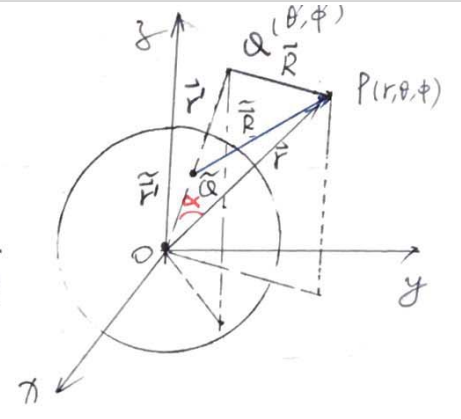 z
Q (θ,ϕ)
R⃗
P(r,θ,ϕ)
r⃗'
R̃⃗
r⃗
r̃⃗'
Q̃
α
O
y
x